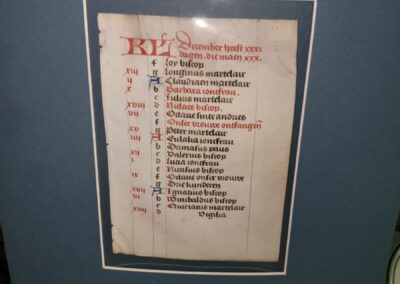 KL December heeft xxxi
daghen. die maen xxx.
f Loy biscop
xiii g Longinus martelaer
ii A Claudiaen martelaer
x b Barbara ioncfrau.
c Iulius martelaer
xviii d Niclaes biscop.
vii e Octave sinte andries
f Onser vrouwe ontfanghen
xv g Peter martelaer
iiii A Eulalia ioncfrau
b Damasus paus
xii c Valerius biscop
i d Lucia ioncfrau
e Nicasius biscop
ix f Octave onser vrouwe
g Drie kinderen
xvii A Ignatius biscop
vi b Wunibaldus biscop
c
xiiii d Vigilia